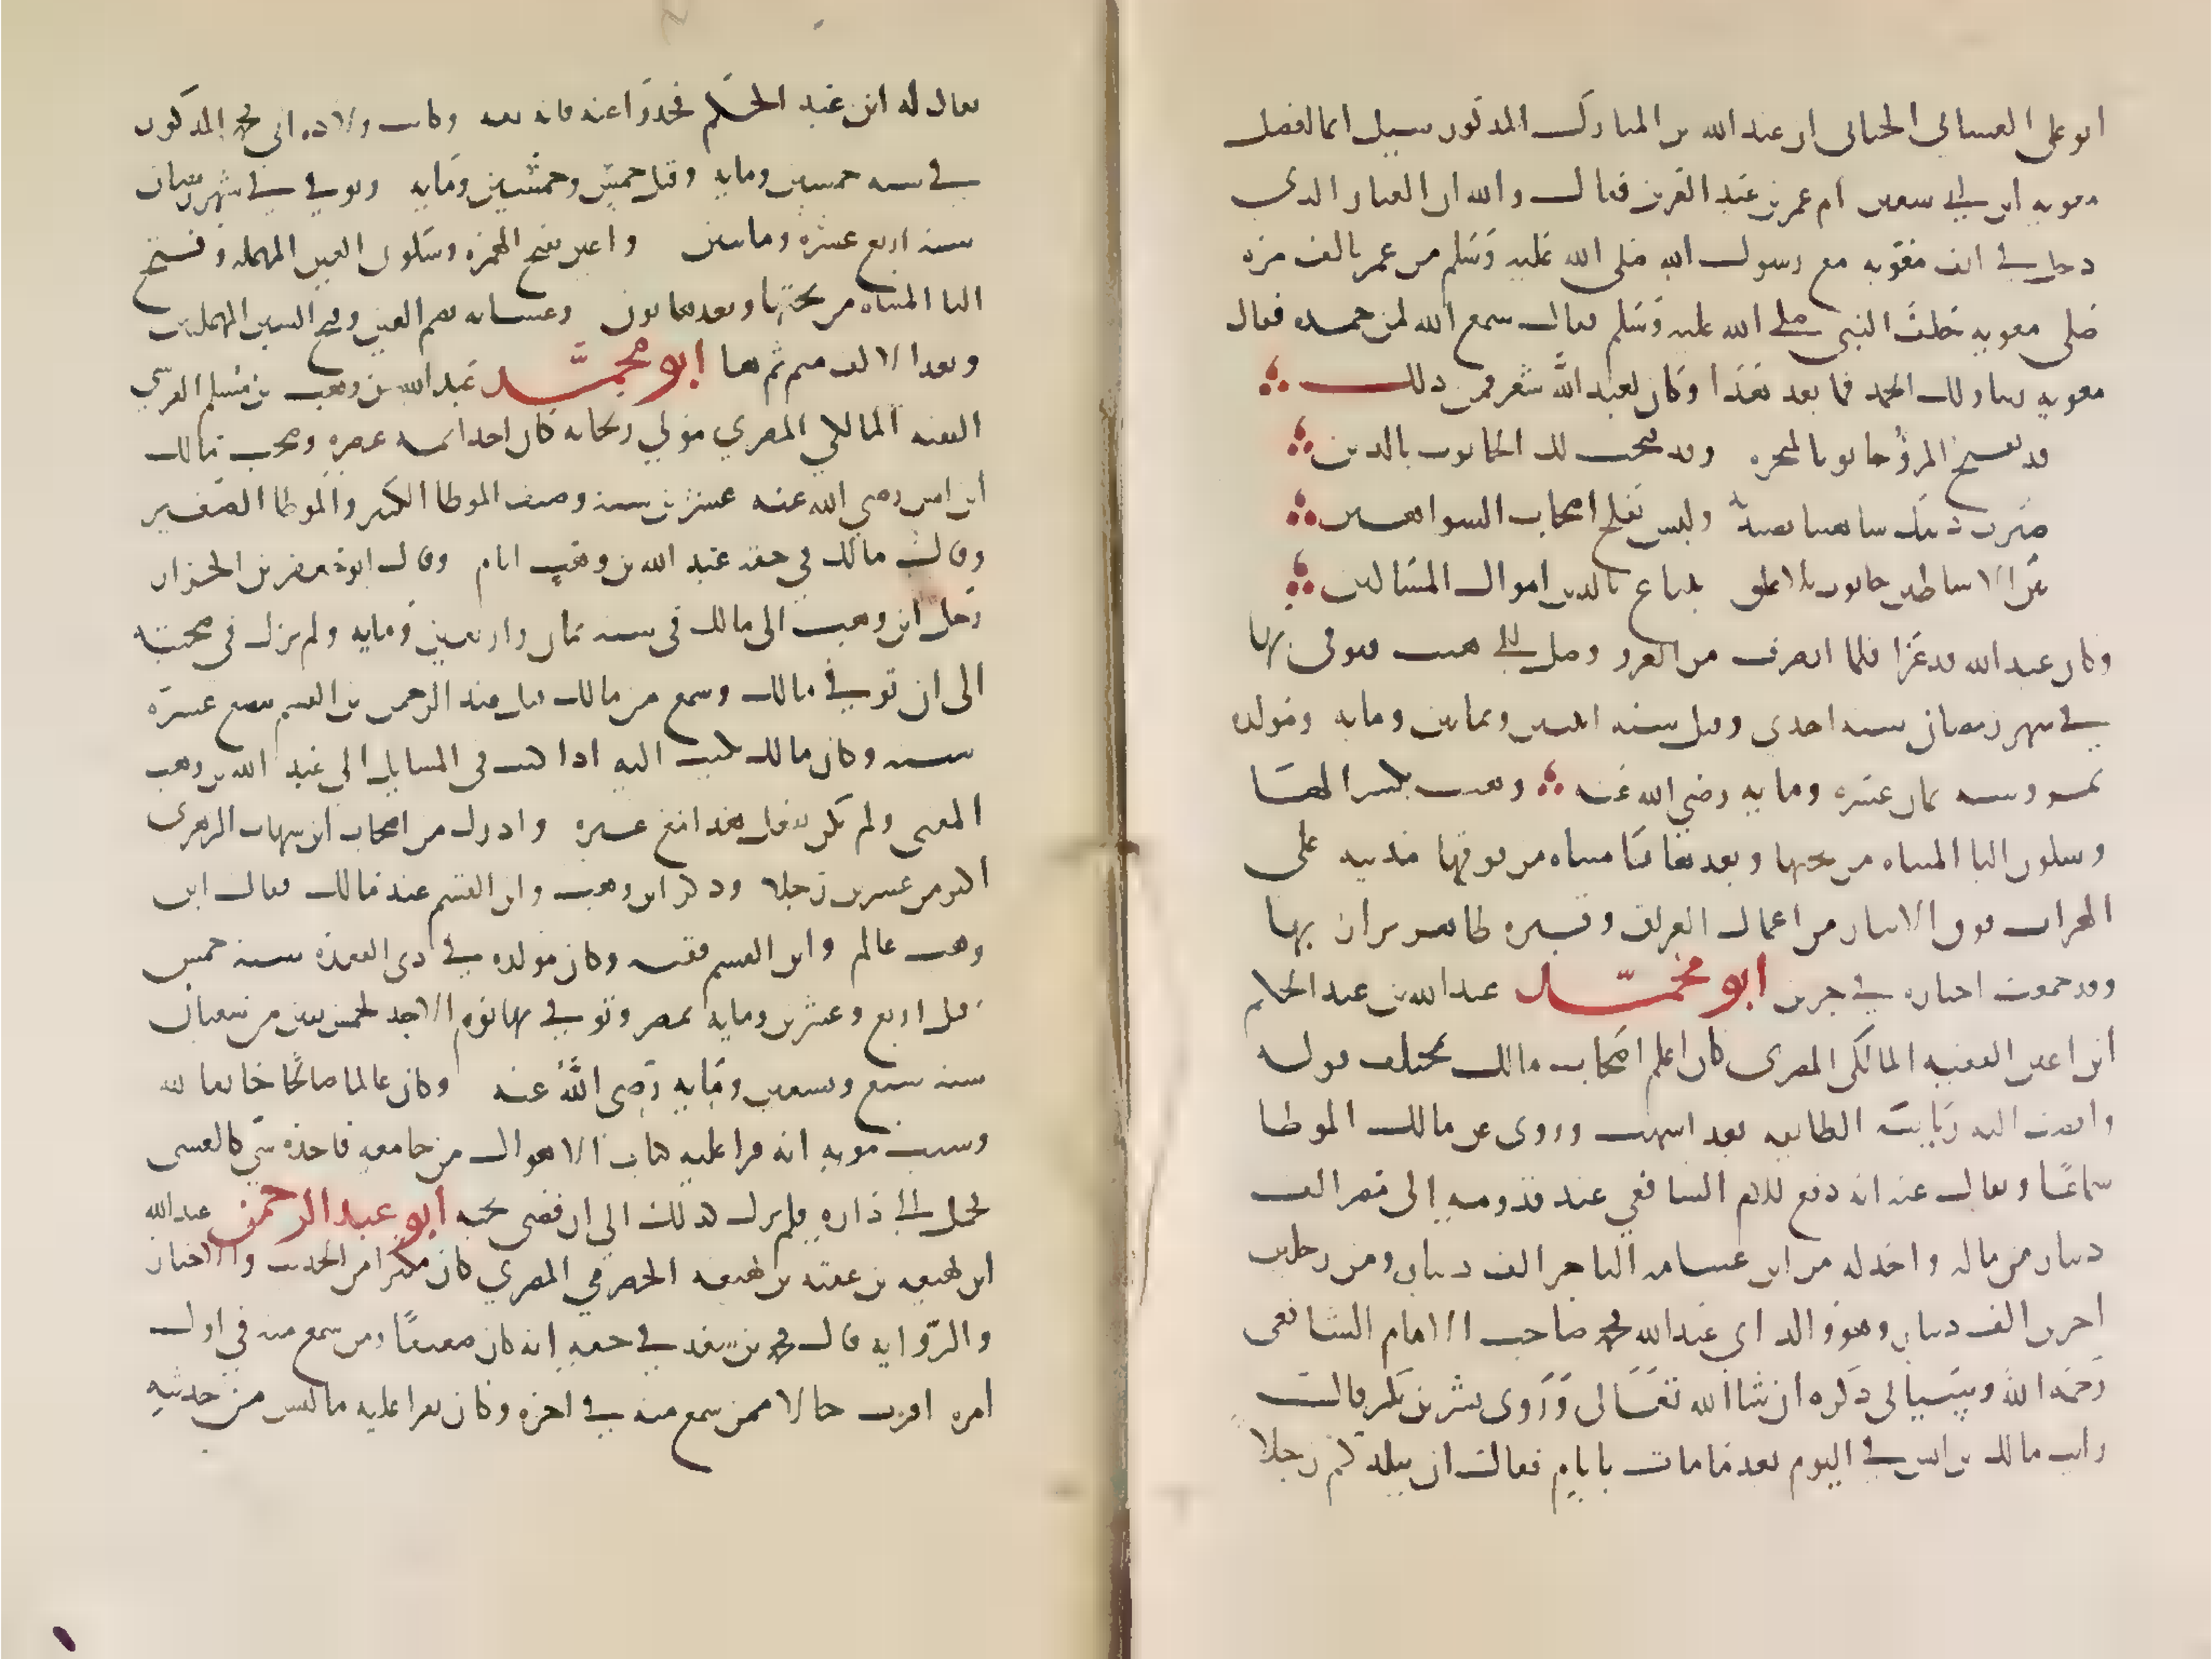 ابو علی الغسانی الجیانی ان عبد الله بن المبارک المذکور سیل ایما افضل
معویه ابن ابی سفین ام عمر بن عبد العزیز فقال والله ان الغبار الذی
دخل فی انف معویه مع رسول الله صلی الله علیه وسلم من عمر بالف مره
صلی معویه خلف النبی صلی الله علیه وسلم فقال سمع الله لمن حمده فقال
معویه ربنا ولک الحمد فما بعد هذا وکان لعبد الله شعر فمن ذلک
قد یفتح المرؤ حانوتا لمتجره وقد فتحت لک الحانوت بالدین
بین الاساطین حانوت بلا غلق یبتاع بالدین اموال المساکین
وکان عبد الله قد غزا فلما انصرف من الغزو وصل الی هیت فتوفی بها
فی شهر رمضان سنه احدی وقیل سنه اثنین وثمانین ومایه ومولده
بمرو سنه ثمان عشره ومایه رضی الله عنه وهیت بکسر الها
وسکون الیا المثناه من تحتها وبعدها تا مثناه من فوقها مدینه علی
الفرات فوق الانبار من اعمال العراق وقبره ظاهر یزار بها
وقد جمعت اخباره فی جزین ابو محمد عبد الله بن عبد الحکم
ابن اعین الفقیه المالکی المصری کان اعلم اصحاب مالک بمختلف قوله
وافضت الیه ریاسة الطایفه بعد اشهب وروی عن مالک الموطا
سماعا ویقال عنه انه دفع للامام الشافعی عند قدومه إلی مصر الف
دینار من ماله واخذ له من ابن عسامه التاجر الف دینار ومن رجلین
اخرین الف دینار وهو والد ابی عبد الله محمد صاحب الامام الشافعی
رحمه الله وسیاتی ذکره ان شا الله تعالی وروی بشر بن بکر قال
رایت مالک بن انس فی النوم بعد ما مات بایام فقال ان ببلدکم رجلا
یقال له ابن عبد الحکم فخذوا عنه فانه ثقه وکانت ولاده ابی محمد المذکور
فی سنه خمسین ومایه وقیل خمس وخمسین ومایه وتوفی فی شهر رمضان
سنه اربع عشره وماتین واعین بفتح الهمزه وسکون العین المهمله وفتح
الیا المثناه من تحتها وبعدها نون وعسامه بضم العین وفتح السین المهملتین
وبعد الالف میم ثم ها ابو محمد عبد الله بن وهب بن مسلم القرشی
الفقیه المالکی المصری مولی ریحانه کان احد ایمه عصره وصحب مالک
ابن انس رضی الله عنه عشرین سنه وصنف الموطا الکبیر والموطا الصغیر
وقال مالک فی حقه عبد الله بن وهب امام وقال ابو جعفر بن الجزار
رحل ابن وهب الی مالک فی سنه ثمان واربعین ومایه ولم یزل فی صحبته
الی ان توفی مالک وسمع من مالک قبل عبد الرحمن بن القسم ببضع عشره
سنه وکان مالک یکتب الیه اذا کتب فی المسایل الی عبد الله بن وهب
المفتی ولم یکن یفعل هذا مع غیره وادرک من اصحاب ابن شهاب الزهری
اکثر من عشرین رجلا وذکر ابن وهب وابن القسم عند مالک فقال ابن
وهب عالم وابن القسم فقیه وکان مولده فی ذی القعده سنه خمس
وقیل اربع وعشرین ومایه بمصر وتوفی بها یوم الاحد لخمس بقین من شعبان
سنه سبع وتسعین ومایه رضی الله عنه وکان عالما صالحا خایفا لله
وسبب موته انه قرا علیه کتاب الاهوال من جامعه فاخذه شی کالغشی
فحمل الی داره فلم یزل کذلک الی ان قضی نحبه ابو عبد الرحمن عبد الله
ابن لهیعه بن عقبه بن لهیعه الحضرمی المصری کان مکثرا من الحدیث والاخبار
والروایه قال محمد بن سعد فی حقه إنه کان ضعیفا ومن سمع منه فی اول
امره اقرب حالا ممن سمع منه فی اخره وکان یقرا علیه ما لیس من حدیثه